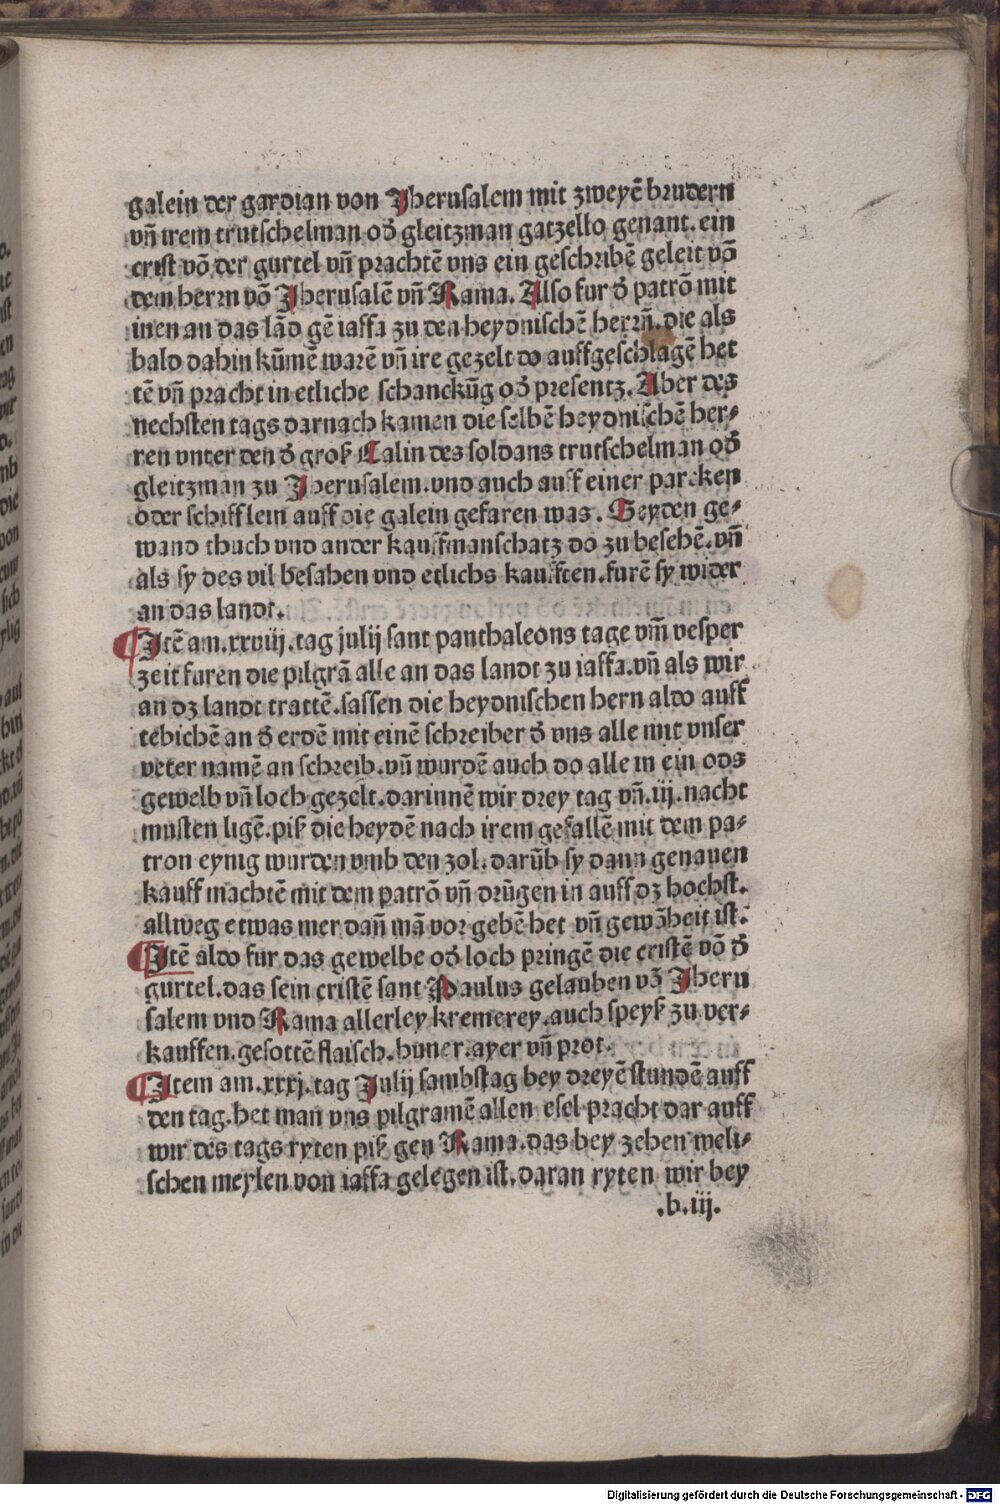 galein der gardian von Jherusalem mit zweyē brudern
vñ irem trutschelman od̄ gleitzman gatzello genant. ein
crist vō der gurtel vñ prachtē vns ein geschribē geleit vō
dem herrn vō Jherusalē vñ Rama. Also fur d̄ patrō mit
inen an das lād gē iaffa zu den heydnischē herrñ. die als
bald dahin kūmē warē vñ ire gezelt do auffgeschlagē het
tē vñ pracht in etliche schanckūg od̄ presentz. Aber des
nechsten tags darnach kamen die selbē heydnischē her⸗
ren vnter den d̄ groß Calin des soldans trutschelman od̄
gleitzman zu Jherusalem. vnd auch auff einer parcken
oder schifflein auff die galein gefaren was. Seyden ge⸗
wand thuch vnd ander kauffmanschatz do zu besehē. vñ
als sy des vil besahen vnd etlichs kaufften. furē sy wider
an das landt.
¶ Jtē am. xxviij. tag julij sant panthaleons tage vm̄ vesper
zeit furen die pilgrā alle an das landt zu iaffa. vñ als wir
an dz landt trattē. sassen die heydnischen hern aldo auff
tebichē an d̄ erdē mit einē schreiber d̄ vns alle mit vnser
veter namē an schreib. vñ wurdē auch do alle in ein ods
gewelb vñ loch gezelt. darinnē wir drey tag vñ. iij. nacht
musten ligē. piß die heydē nach irem gefallē mit dem pa⸗
tron eynig wurden vmb den zol. darūb sy dann genauen
kauff machtē mit dem patrō vñ drūgen in auff dz hochst.
allweg etwas mer dañ mā vor gebē het vñ gewōheit ist.
¶ Jtē aldo fur das gewelbe od̄ loch pringē die cristē vō d̄
gurtel. das sein cristē sant Paulus gelauben vō Jheru
salem vnd Rama allerley kremerey. auch speyß zu ver⸗
kauffen. gesottē flaisch. huner. ayer vñ prot.
¶ Jtem am. xxxj. tag Julij sambstag bey dreyē stundē auff
den tag. het man vns pilgramē allen esel pracht dar auff
wir des tags ryten piß gen Rama. das bey zehen weli⸗
schen meylen von iaffa gelegen ist. daran ryten wir bey
.b.iij.
Digitalisierung gefördert durch die Deutsche Forschungsgemeinschaft - DFG